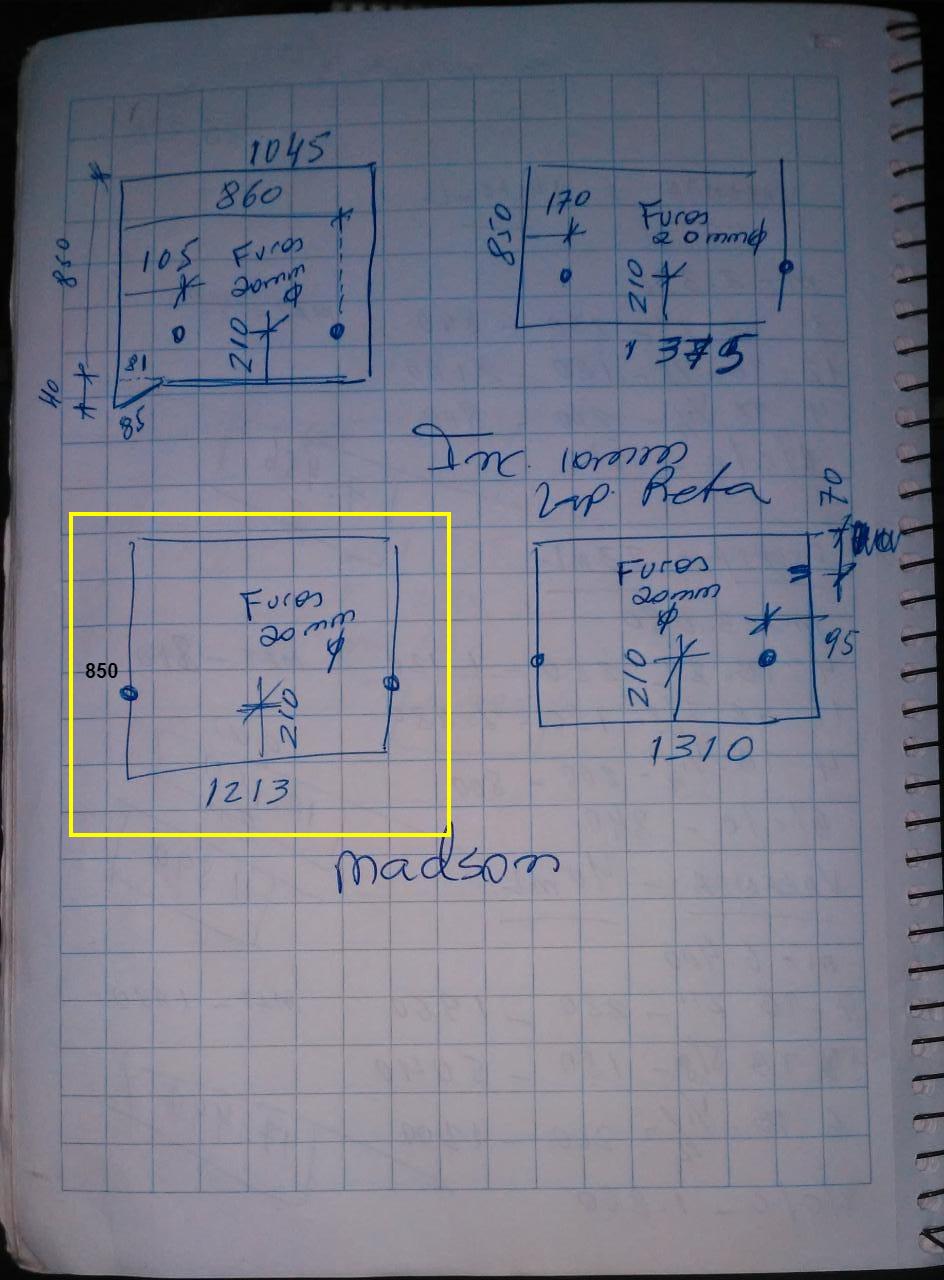 1045
860
105
Furos
20mm
φ
210
850
81
40
85
850
170
Furos
20mmφ
210
Inc. 10mm
Lap. Reta
850
Furos
20mm
φ
210
1213
70
Furos
20mm
φ
210
95
1310
madson